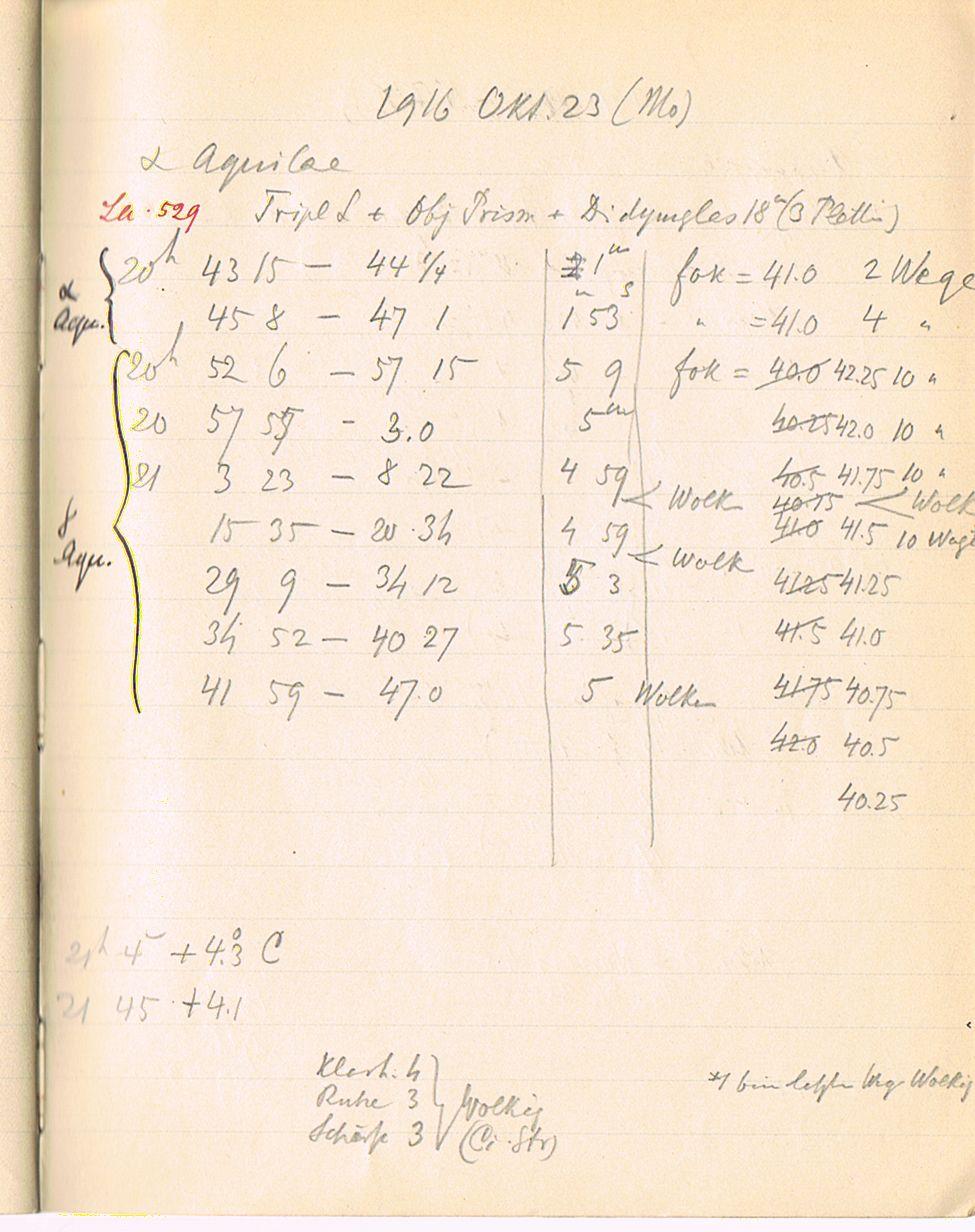 1916 Okt. 23 (Mo)
α Aquilae
529 Tripl L + Obj Prism + Didymglas 18 (3 Platten)
α Aqu.
20h 43 15 — 44 1/4 1m fok = 41.0 2 Wege
45 8 — 47 1 1m 53s " = 41.0 4 "
Aqu.
20h 52 6 — 57 15 5 9 fok = 40.0 42.25 10 "
20 57 55 - 3.0 5m 40.25 42.0 10 "
21 3 23 — 8 22 4 59 40.5 41.75 10 "
< Wolk 40.75 < Wolk
15 35 — 20 34 4 59 41.0 41.5 10 Wege
< Wolk
29 9 — 34 12 5 3 41.25 41.25
34 52 — 40 27 5 35 41.5 41.0
41 59 — 47.0 5 Wolken 41.75 40.75
42.0 40.5
40.25
21h 45 +4.°3 C
21 45 +4.1
Klarh. 4
Ruhe 3 } Wolkig
Schärfe 3 (Ci-Str)
*) beim letzten Weg Wolkig